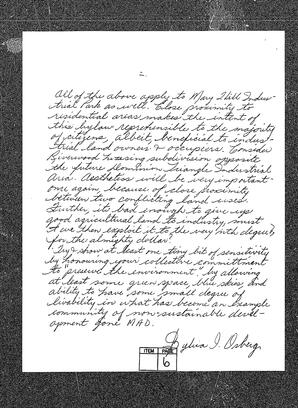 2.
All of the above apply to Mary Hill Indus-
trial Park as well. Close proximity to
residential areas makes the intent of
this bylaw reprehensible to the majority
of citizens, albeit beneficial to indus-
trial land owners & occupiers. Consider
Riverwood housing subdivision opposite
the future Dominion Triangle Industrial
area. Aesthetics will be very important
once again, because of close proximity
between two conflicting land uses.
Further, it's bad enough to give up
good agricultural land to industry, must
we then exploit it to the way nth degree
for the almighty dollar?
show at least one tiny bit of sensitivity
by honouring your collective commitment
to "preserve the environment", by allowing
at least some green space, blue skies and
ability to have some small degree of
livability in what has become an example
community of non-sustainable devel-
opment gone MAD.
Sylvia I. Osberg
ITEM PAGE
6